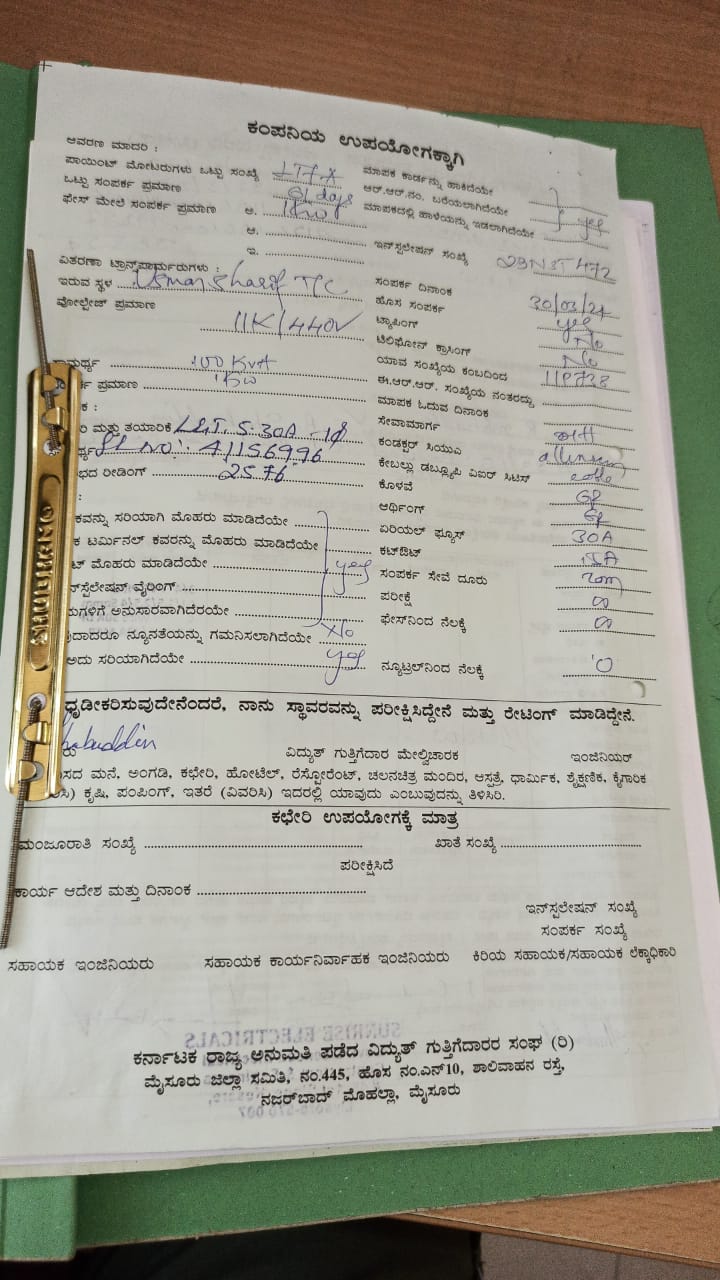 ಕಂಪನಿಯ ಉಪಯೋಗಕ್ಕಾಗಿ
ಆವರಣ ಮಾದರಿ :
ಪಾಯಿಂಟ್ ಮೋಟರುಗಳು ಒಟ್ಟು ಸಂಖ್ಯೆ LT7.X
ಒಟ್ಟು ಸಂಪರ್ಕ ಪ್ರಮಾಣ days
ಫೇಸ್ ಮೇಲೆ ಸಂಪರ್ಕ ಪ್ರಮಾಣ ಅ. 1KW
ಆ.
ಇ.
ಮಾಪಕ ಕಾರ್ಡನ್ನು ಹಾಕಿದೆಯೇ
ಆರ್.ಆರ್.ನಂ. ಬರೆಯಲಾಗಿದೆಯೇ
ಮಾಪಕದಲ್ಲಿ ಹಾಳೆಯನ್ನು ಇಡಲಾಗಿದೆಯೇ yes
ಇನ್‌ಸ್ಪಲೇಷನ್ ಸಂಖ್ಯೆ
ವಿತರಣಾ ಟ್ರಾನ್ಸ್‌ಫಾರ್ಮರುಗಳು :
ಇರುವ ಸ್ಥಳ Usman Sharif T/C
ವೋಲ್ಟೇಜ್ ಪ್ರಮಾಣ 11K/440V
100 KVA
ಪ್ರಮಾಣ 1KW
ಮತ್ತು ತಯಾರಿಕೆ L&T. S. 30A - 1φ
Sl No: 41156996
ರೀಡಿಂಗ್ 2576
ಸಂಪರ್ಕ ದಿನಾಂಕ 30/03/24
ಹೊಸ ಸಂಪರ್ಕ yes
ಟ್ಯಾಪಿಂಗ್ No
ಟೆಲಿಫೋನ್ ಕ್ರಾಸಿಂಗ್ No
ಯಾವ ಸಂಖ್ಯೆಯ ಕಂಬದಿಂದ
ಈ.ಆರ್.ಆರ್. ಸಂಖ್ಯೆಯ ನಂತರದ್ದು
ಮಾಪಕ ಓದುವ ದಿನಾಂಕ
ಸೇವಾಮಾರ್ಗ
ಕಂಡಕ್ಟರ್ ಸಿಯುವಿ
ಕೇಬಲ್ಲು ಡಬ್ಲ್ಯೂಪಿ ವಿಐರ್ ಸಿಟಿಸ್
ಕೊಳವೆ GP
ಆರ್ಥಿಂಗ್
ಏರಿಯಲ್ ಫ್ಯೂಸ್ 30A
ಕಟ್‌ಔಟ್
ಸಂಪರ್ಕ ಸೇವೆ ದೂರು 20m
ಪರೀಕ್ಷೆ ∞
ಫೇಸ್‌ನಿಂದ ನೆಲಕ್ಕೆ ∞
ನ್ಯೂಟ್ರಲ್‌ನಿಂದ ನೆಲಕ್ಕೆ '0
ಸರಿಯಾಗಿ ಮೊಹರು ಮಾಡಿದೆಯೇ
ಟರ್ಮಿನಲ್ ಕವರನ್ನು ಮೊಹರು ಮಾಡಿದೆಯೇ
ಮೊಹರು ಮಾಡಿದೆಯೇ yes
ವೈರಿಂಗ್
ಅನುಸಾರವಾಗಿದೆರಯೇ
ನ್ಯೂನತೆಯನ್ನು ಗಮನಿಸಲಾಗಿದೆಯೇ No
ಅದು ಸರಿಯಾಗಿದೆಯೇ yes
ಧೃಡೀಕರಿಸುವುದೇನೆಂದರೆ, ನಾನು ಸ್ಥಾವರವನ್ನು ಪರೀಕ್ಷಿಸಿದ್ದೇನೆ ಮತ್ತು ರೇಟಿಂಗ್ ಮಾಡಿದ್ದೇನೆ.
ವಿದ್ಯುತ್ ಗುತ್ತಿಗೆದಾರ ಮೇಲ್ವಿಚಾರಕ ಇಂಜಿನಿಯರ್
ಮನೆ, ಅಂಗಡಿ, ಕಛೇರಿ, ಹೋಟೆಲ್, ರೆಸ್ಟೋರೆಂಟ್, ಚಲನಚಿತ್ರ ಮಂದಿರ, ಆಸ್ಪತ್ರೆ, ಧಾರ್ಮಿಕ, ಶೈಕ್ಷಣಿಕ, ಕೈಗಾರಿಕ
ಕೃಷಿ, ಪಂಪಿಂಗ್, ಇತರೆ (ವಿವರಿಸಿ) ಇದರಲ್ಲಿ ಯಾವುದು ಎಂಬುವುದನ್ನು ತಿಳಿಸಿರಿ.
ಕಛೇರಿ ಉಪಯೋಗಕ್ಕೆ ಮಾತ್ರ
ಮಂಜೂರಾತಿ ಸಂಖ್ಯೆ ಖಾತೆ ಸಂಖ್ಯೆ
ಪರೀಕ್ಷಿಸಿದೆ
ಕಾರ್ಯ ಆದೇಶ ಮತ್ತು ದಿನಾಂಕ
ಇನ್‌ಸ್ಪಲೇಷನ್ ಸಂಖ್ಯೆ
ಸಂಪರ್ಕ ಸಂಖ್ಯೆ
ಸಹಾಯಕ ಇಂಜಿನಿಯರು ಸಹಾಯಕ ಕಾರ್ಯನಿರ್ವಾಹಕ ಇಂಜಿನಿಯರು ಕಿರಿಯ ಸಹಾಯಕ/ಸಹಾಯಕ ಲೆಕ್ಕಾಧಿಕಾರಿ
ಕರ್ನಾಟಕ ರಾಜ್ಯ ಅನುಮತಿ ಪಡೆದ ವಿದ್ಯುತ್ ಗುತ್ತಿಗೆದಾರರ ಸಂಘ (ರಿ)
ಮೈಸೂರು ಜಿಲ್ಲಾ ಸಮಿತಿ, ನಂ.445, ಹೊಸ ನಂ.ಎನ್10, ಶಾಲಿವಾಹನ ರಸ್ತೆ,
ನಜರ್‌ಬಾದ್ ಮೊಹಲ್ಲಾ, ಮೈಸೂರು